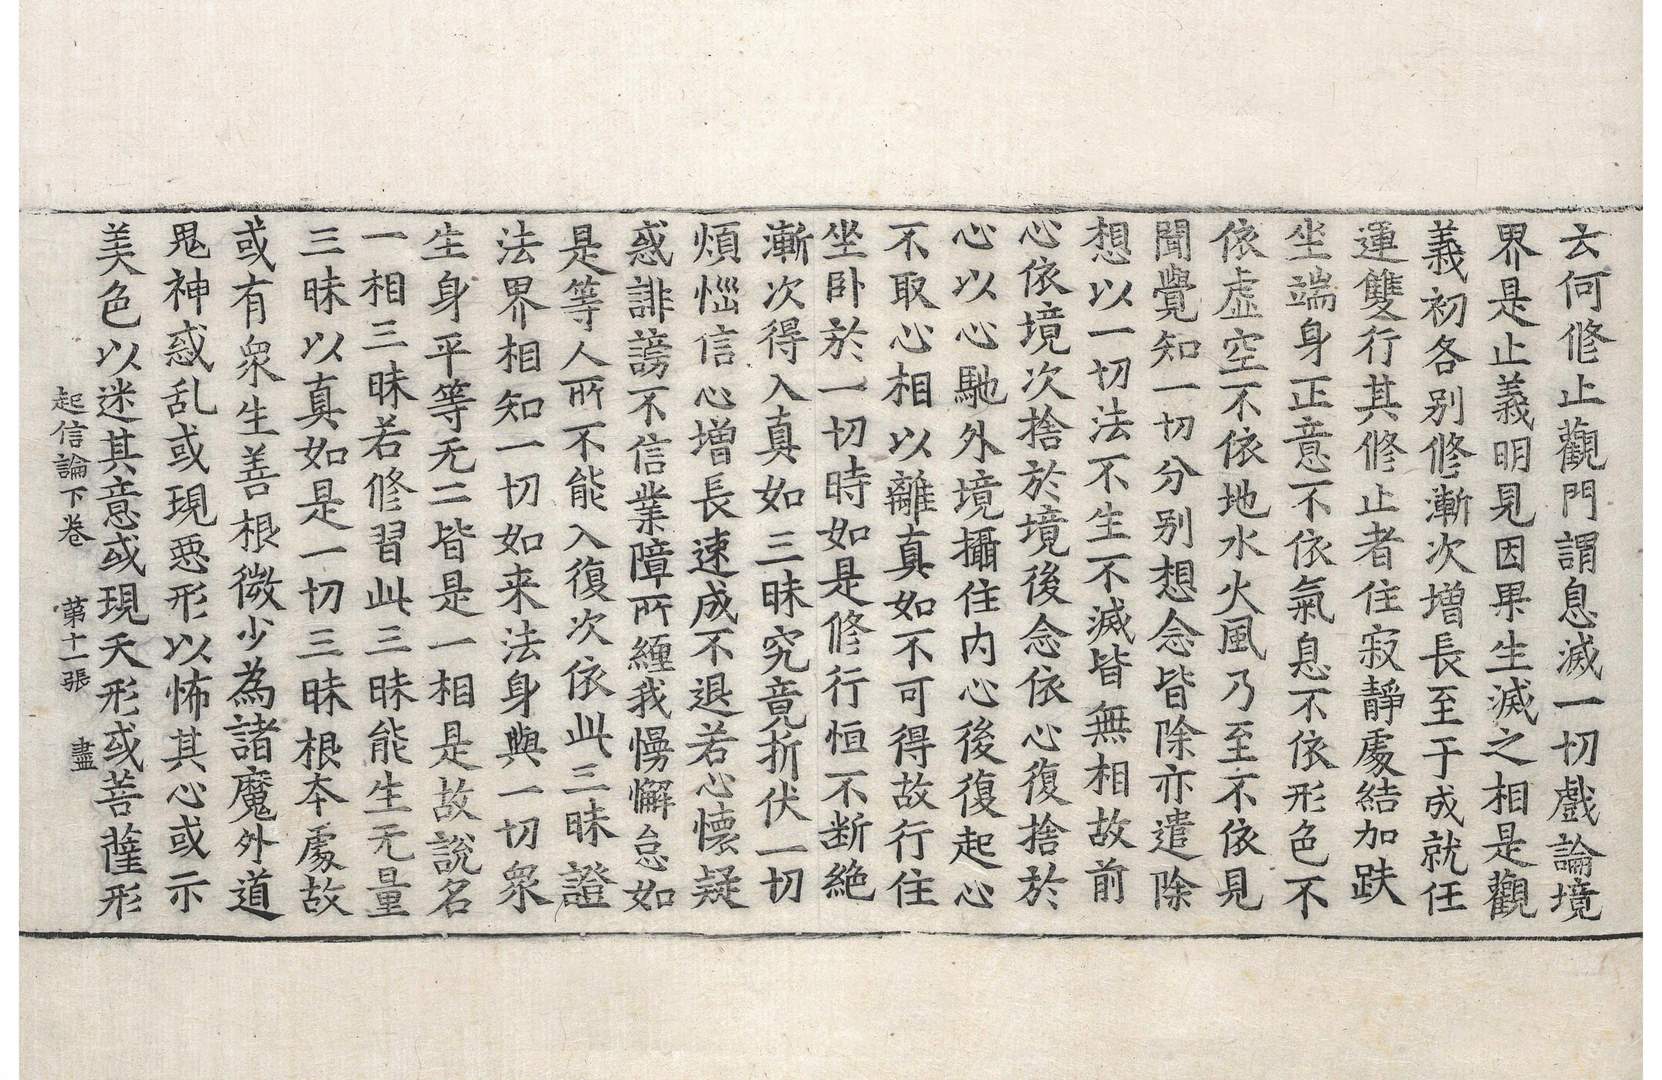 云何修止觀門謂息滅一切戲論境
界是止義明見因果生滅之相是觀
義初各别修漸次增長至于成就任
運雙行其修止者住寂靜處結加趺
坐端身正意不依氣息不依形色不
依虛空不依地水火風乃至不依見
聞覺知一切分别想念皆除亦遣除
想以一切法不生不滅皆無相故前
心依境次捨於境後念依心復捨於
心以心馳外境攝住内心後復起心
不取心相以離真如不可得故行住
坐卧於一切時如是修行恒不断絶
漸次得入真如三昧究竟折伏一切
煩惱信心增長速成不退若心懷疑
惑誹謗不信業障所纏我慢懈怠如
是等人所不能入復次依此三昧證
法界相知一切如来法身與一切衆
生身平等无二皆是一相是故説名
一相三昧若修習此三昧能生无量
三昧以真如是一切三昧根本處故
或有衆生善根微少為諸魔外道
鬼神惑乱或現惡形以怖其心或示
美色以迷其意或現天形或菩薩形
起信論下卷 第十一張 盡